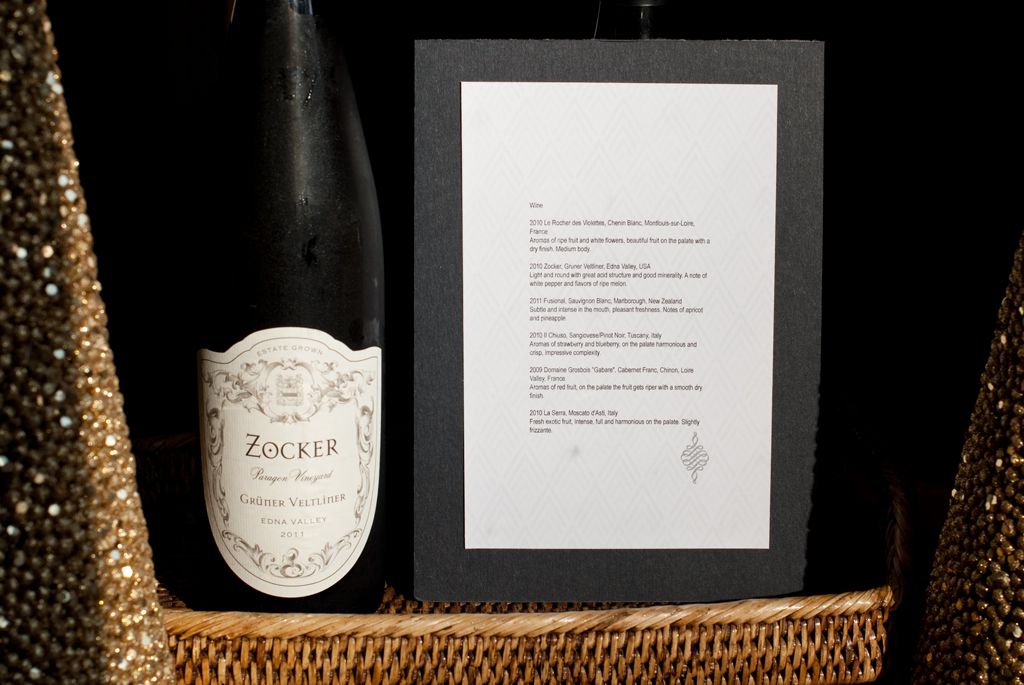 ESTATE GROWN
ZOCKER
Paragon Vineyard
GRÜNER VELTLINER
EDNA VALLEY
2011
Wine
2010 Le Rocher des Violettes, Chenin Blanc, Montlouis-sur-Loire,
France
Aromas of ripe fruit and white flowers, beautiful fruit on the palate with a
dry finish. Medium body.
2010 Zocker, Gruner Veltliner, Edna Valley, USA
Light and round with great acid structure and good minerality. A note of
white pepper and flavors of ripe melon.
2011 Fusional, Sauvignon Blanc, Marlborough, New Zealand
Subtle and intense in the mouth, pleasant freshness. Notes of apricot
and pineapple.
2010 Il Chiuso, Sangiovese/Pinot Noir, Tuscany, Italy
Aromas of strawberry and blueberry, on the palate harmonious and
crisp, impressive complexity.
2009 Domaine Grosbois "Gabare", Cabernet Franc, Chinon, Loire
Valley, France
Aromas of red fruit, on the palate the fruit gets riper with a smooth dry
finish.
2010 La Serra, Moscato d'Asti, Italy
Fresh exotic fruit, intense, full and harmonious on the palate. Slightly
frizzante.